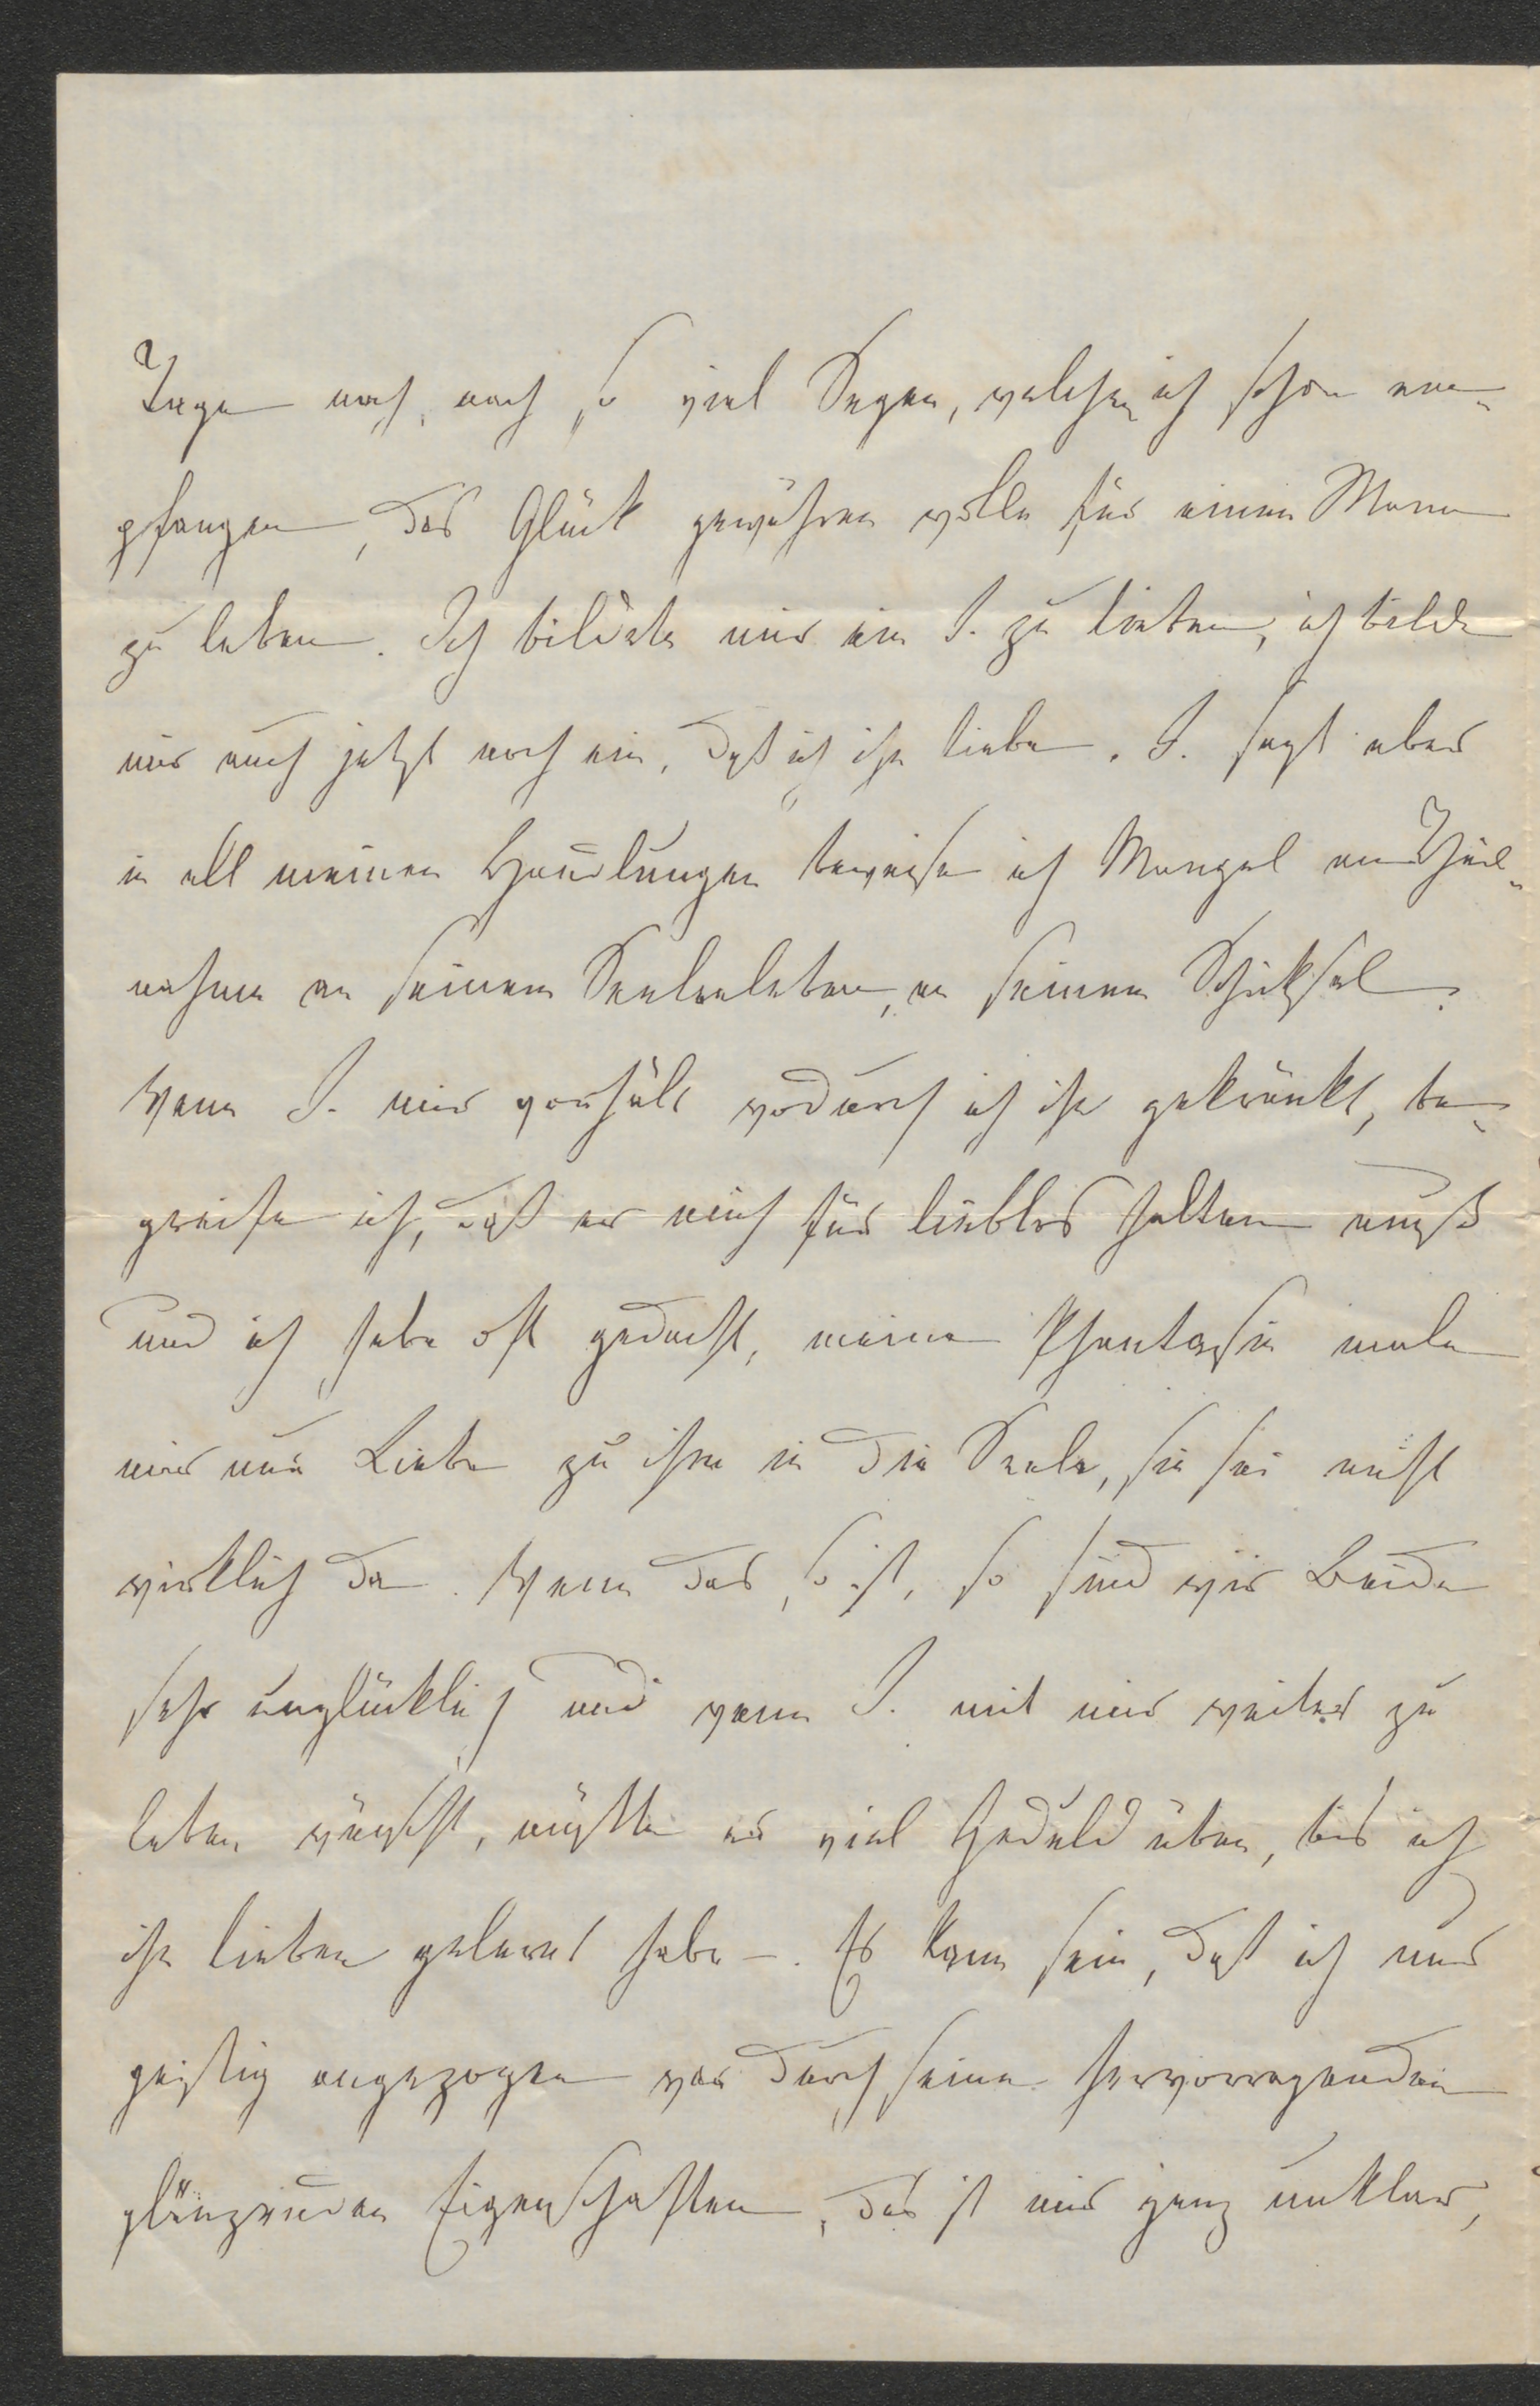 Tagen noch, nach so viel Segen, welchen ich schon em-
pfangen, das Glück gewähren wolle für einen Mann
zu leben. Ich bildete mir ein J. zu lieben, ich bilde
mir auch jetzt noch ein, daß ich ihn liebe. J. sagt aber
in all meinen Handlungen beweise ich Mangel an Theil-
nahme an seinem Seelenleben, an seinem Schicksal.
Wenn J. mir vorhält wodurch ich ihn gekränkt, be-
greife ich, daß er mich für lieblos halten muß
und ich habe oft gedacht, meine Phantasie male
mir nur Liebe zu ihm in die Seele, sie sei nicht
wirklich da. Wenn das so ist, so sind wir Beide
sehr unglücklich und wenn J. mit mir weiter zu
leben wünscht, müßte er viel Geduld üben, bis ich
ihn lieben gelernt habe –. Es kann sein, daß ich nur
geistig angezogen war durch seine hervorragenden
glänzenden Eigenschaften, das ist mir ganz unklar,